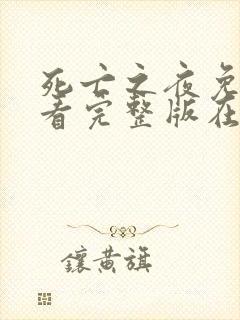 死亡之夜免
看完整版在
鑲黃旗